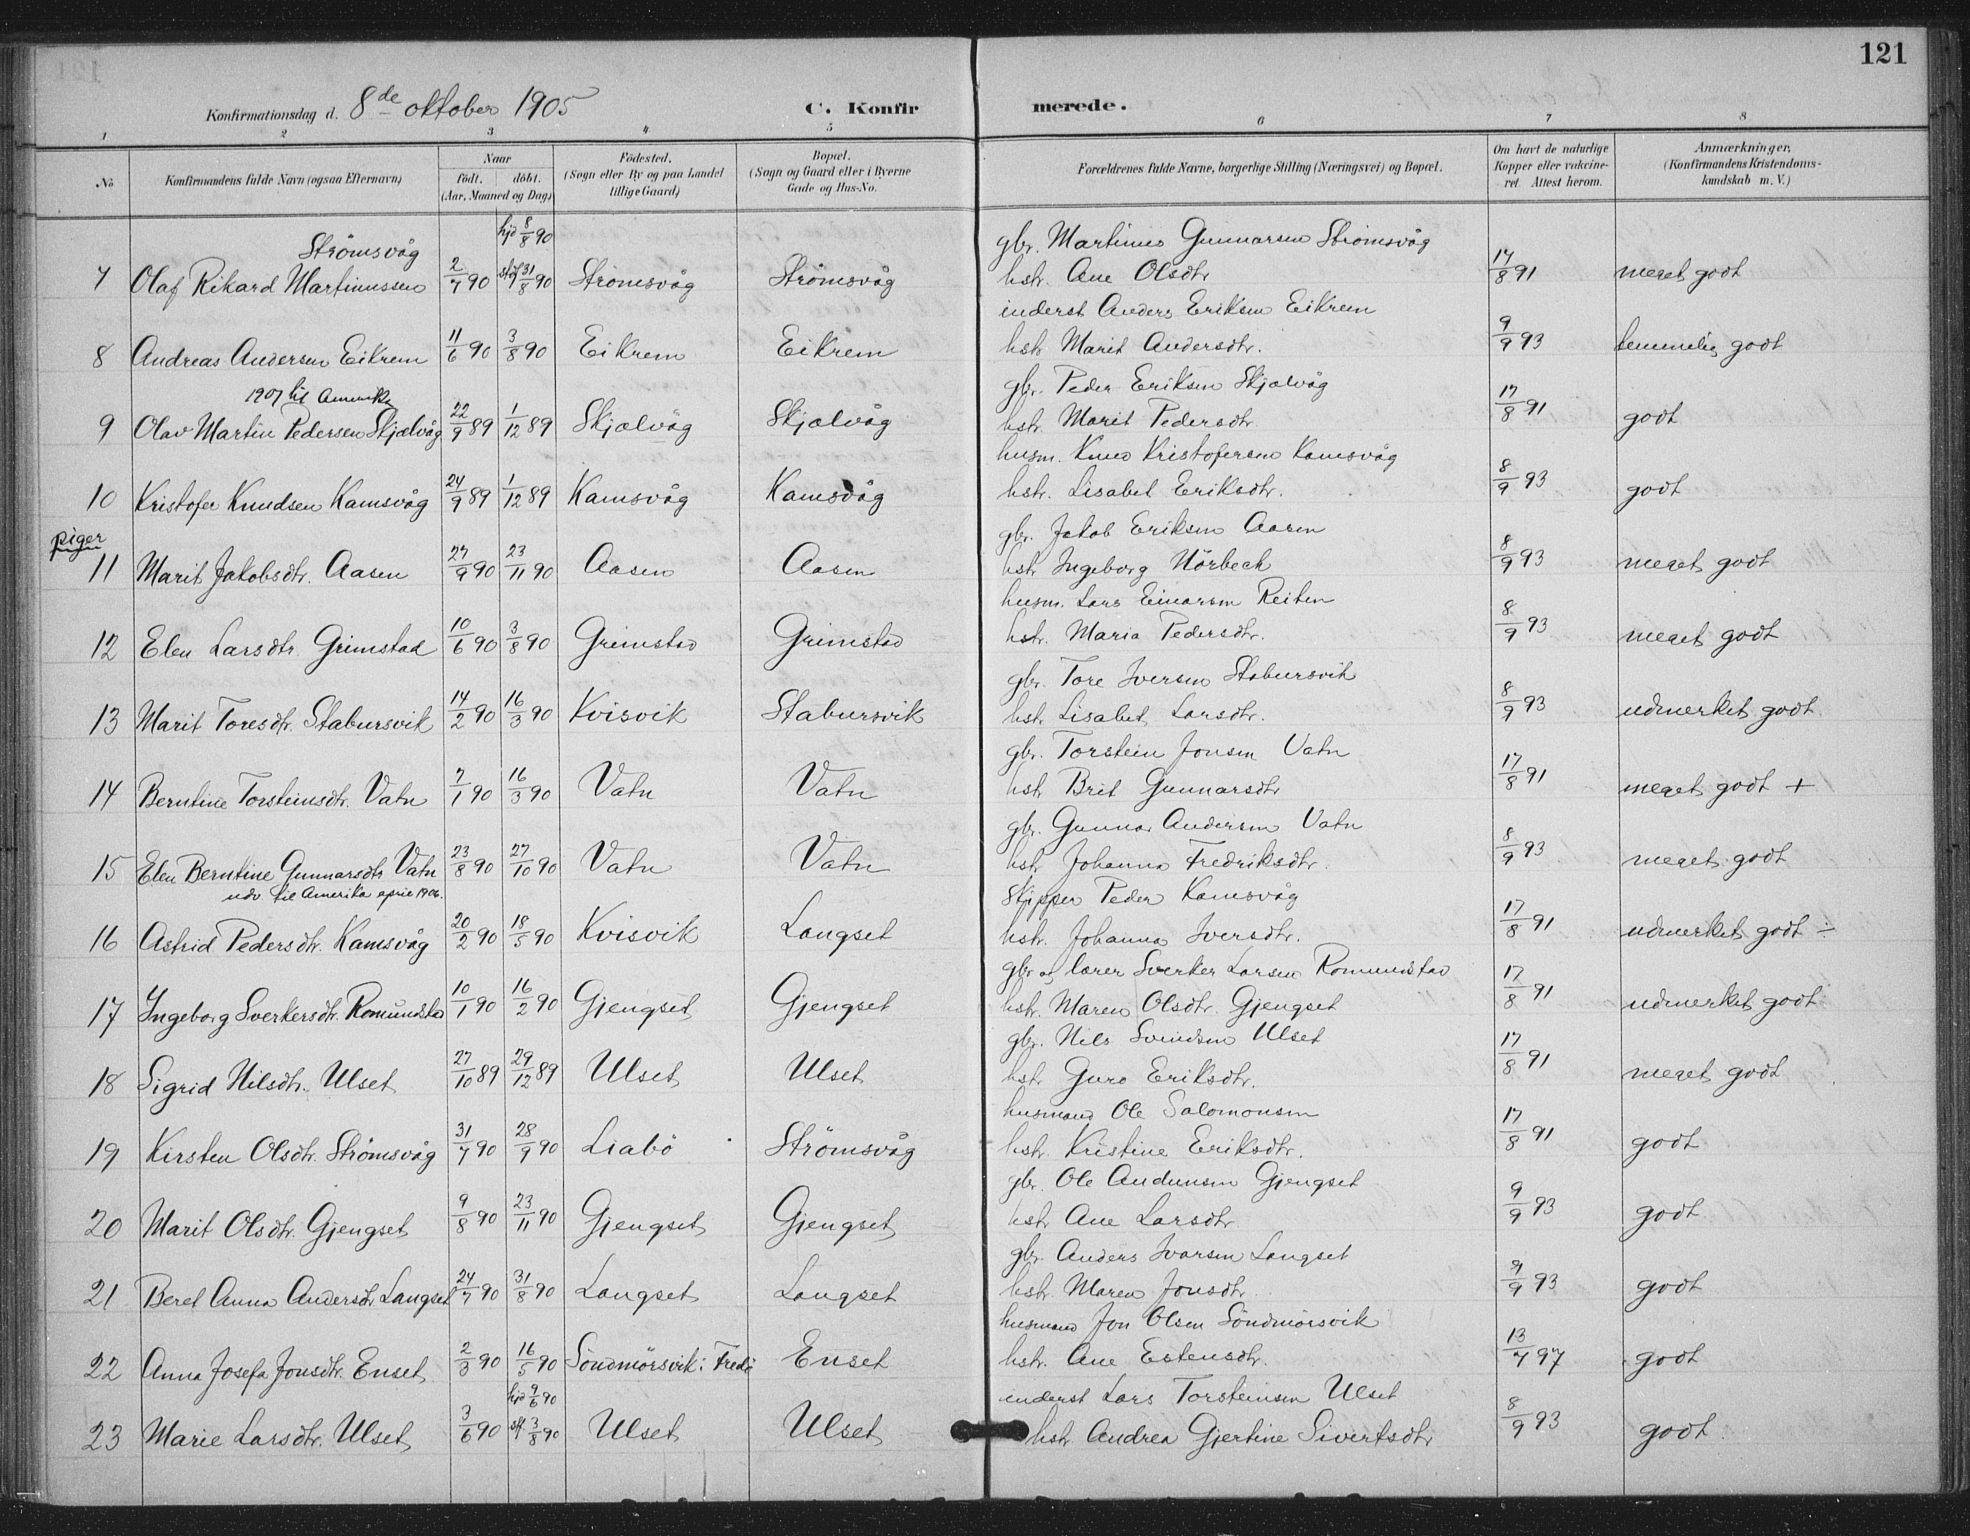 121
Konfirmationsdag d. 8de oktober 1905 C. Konfirmerede.
1 2 3 4 5 6 7 8
No Konfirmandens fulde Navn (ogsaa Efternavn) Naar født. døbt. (Aar, Maaned og Dag) Fødested. (Sogn eller By og paa Landet tillige Gaard) Bopæl. (Sogn og Gaard eller i Byerne Gade og Hus-No. Forældrenes fulde Navne, borgerlige Stilling (Næringsvei) og Bopæl. Om havt de naturlige Kopper eller vakcineret. Attest herom. Anmærkninger, (Konfirmandens Kristendomskundskab m. V.)
Strömsvåg hjd 8/8 90 gbr. Martinus Gunnarsen Strömsvåg
7 Olaf Rikard Martinussen 2/7 90 stf 31/8 90 Strömsvåg Strömsvåg hstr. Ane Olsdtr 17/8 91 meget godt
inderst Anders Eriksen Eikrem
8 Andreas Andersen Eikrem 11/6 90 3/8 90 Eikrem Eikrem hstr Marit Andersdtr. 9/9 93 temmelig godt
1907 til Amerika gbr. Peder Eriksen Skjælvåg
9 Olav Martin Pedersen Skjælvåg 22/9 89 1/12 89 Skjælvåg Skjælvåg hstr. Marit Pedersdtr. 17/8 91 godt
husm. Knud Kristofersen Kamsvåg
10 Kristofer Knudsen Kamsvåg 24/9 89 1/12 89 Kamsvåg Kamsvåg hstr. Lisabet Eriksdtr. 8/9 93 godt
piger gbr. Jakob Eriksen Aasen
11 Marit Jakobsdtr. Aasen 27/9 90 23/11 90 Aasen Aasen hstr Ingeborg Nörbeck 8/9 93 meget godt
husm. Lars Einarsen Reiten
12 Elen Larsdtr. Grimstad 10/6 90 3/8 90 Grimstad Grimstad hstr. Maria Pedersdtr. 8/9 93 meget godt
gbr. Tore Iversen Stabursvik
13 Marit Toresdtr. Stabursvik 14/2 90 16/3 90 Kvisvik Stabursvik hstr. Lisabet Larsdtr. 8/9 93 udmerket godt
gbr. Torstein Jonsen Vatn
14 Berntine Torsteinsdtr. Vatn 7/1 90 16/3 90 Vatn Vatn hstr Brit Gunnarsdtr 17/8 91 meget godt +
gbr. Gunnar Andersen Vatn
15 Elen Berntine Gunnarsdtr Vatn 23/8 90 27/10 90 Vatn Vatn hstr Johanna Fredriksdtr. 8/9 93 meget godt
udv. til Amerika april 1906. Skipper Peder Kamsvåg
16 Astrid Pedersdtr. Kamsvåg 20/2 90 18/5 90 Kvisvik Langset hstr. Johanna Iversdtr. 17/8 91 udmerket godt ÷
gbr og lærer Sverker Larsen Romundstad
17 Ingeborg Sverkersdtr. Romundstad 10/1 90 16/2 90 Gjengset Gjengset hstr. Maren Olsdtr. Gjengset 17/8 91 udmerket godt
gbr. Nils Svendsen Ulset
18 Sigrid Nilsdtr. Ulset 27/10 89 29/12 89 Ulset Ulset hstr Guro Eriksdtr. 17/8 91 meget godt
husmand Ole Salomonsen
19 Kirsten Olsdtr. Strømsvåg 31/7 90 28/9 90 Liabö Strömsvåg hstr. Kristine Eriksdtr. 17/8 91 godt
gbr. Ole Andunsen Gjengset
20 Marit Olsdtr. Gjengset 9/8 90 23/11 90 Gjengset Gjengset hstr Ane Larsdtr 9/9 93 godt
gbr. Anders Ivarsen Langset
21 Beret Anna Andersdtr Langset 24/7 90 31/8 90 Langset Langset hstr. Maren Jonsdtr. 9/9 93 godt
husmand Jon Olsen Söndmörsvik
22 Anna Josefa Jonsdtr. Enset 2/3 90 16/5 90 Söndmörsvik i Fredö Enset hstr. Ane Estensdtr. 13/7 97 godt
hjd 9/6 90 inderst Lars Torsteinsen Ulset
23 Marie Larsdtr. Ulset 3/6 90 stf 3/8 90 Ulset Ulset hstr Andrea Gjertine Sivertsdtr 8/9 93 godt